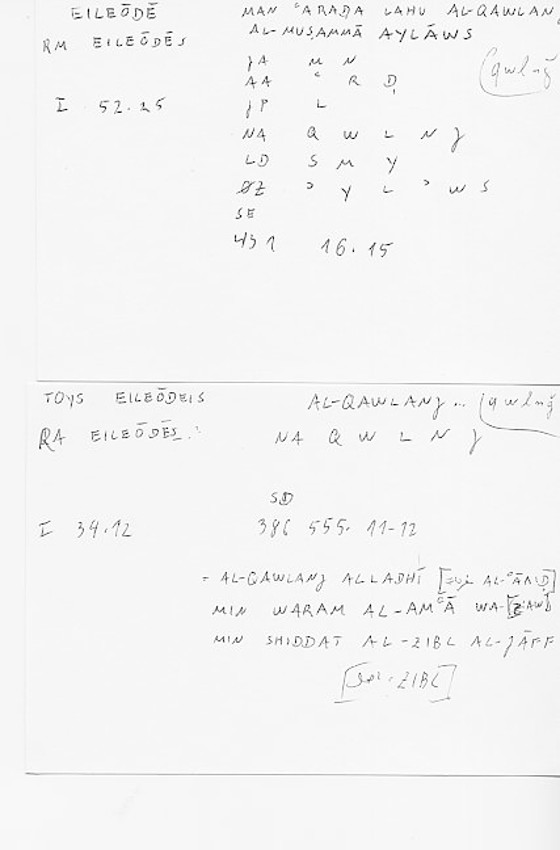 EILEŌDĒ MAN ʿARAḌA LAHU AL-QAWLAN
RM EILEŌDĒS AL-MUSAMMĀ AYLĀWS
JA M N
AA ʿ R Ḍ (qwlnǧ
I 52.25 JP L
NA Q W L N J
LD S M Y
ØZ ʾ Y L ʾ W S
SE
431 16.15
TOYS EILEŌDEIS AL-QAWLANJ... (qwlnǧ
RA EILEŌDĒS NA Q W L N J
SD
I 34.12 386 555. 11-12
- AL-QAWLANJ ALLADHĪ AL-ʿĀRIḌ]
MIN WARAM AL-AMʿĀ WA-
MIN SHIDDAT AL-ZIBL AL-JĀFF
ZIBL]